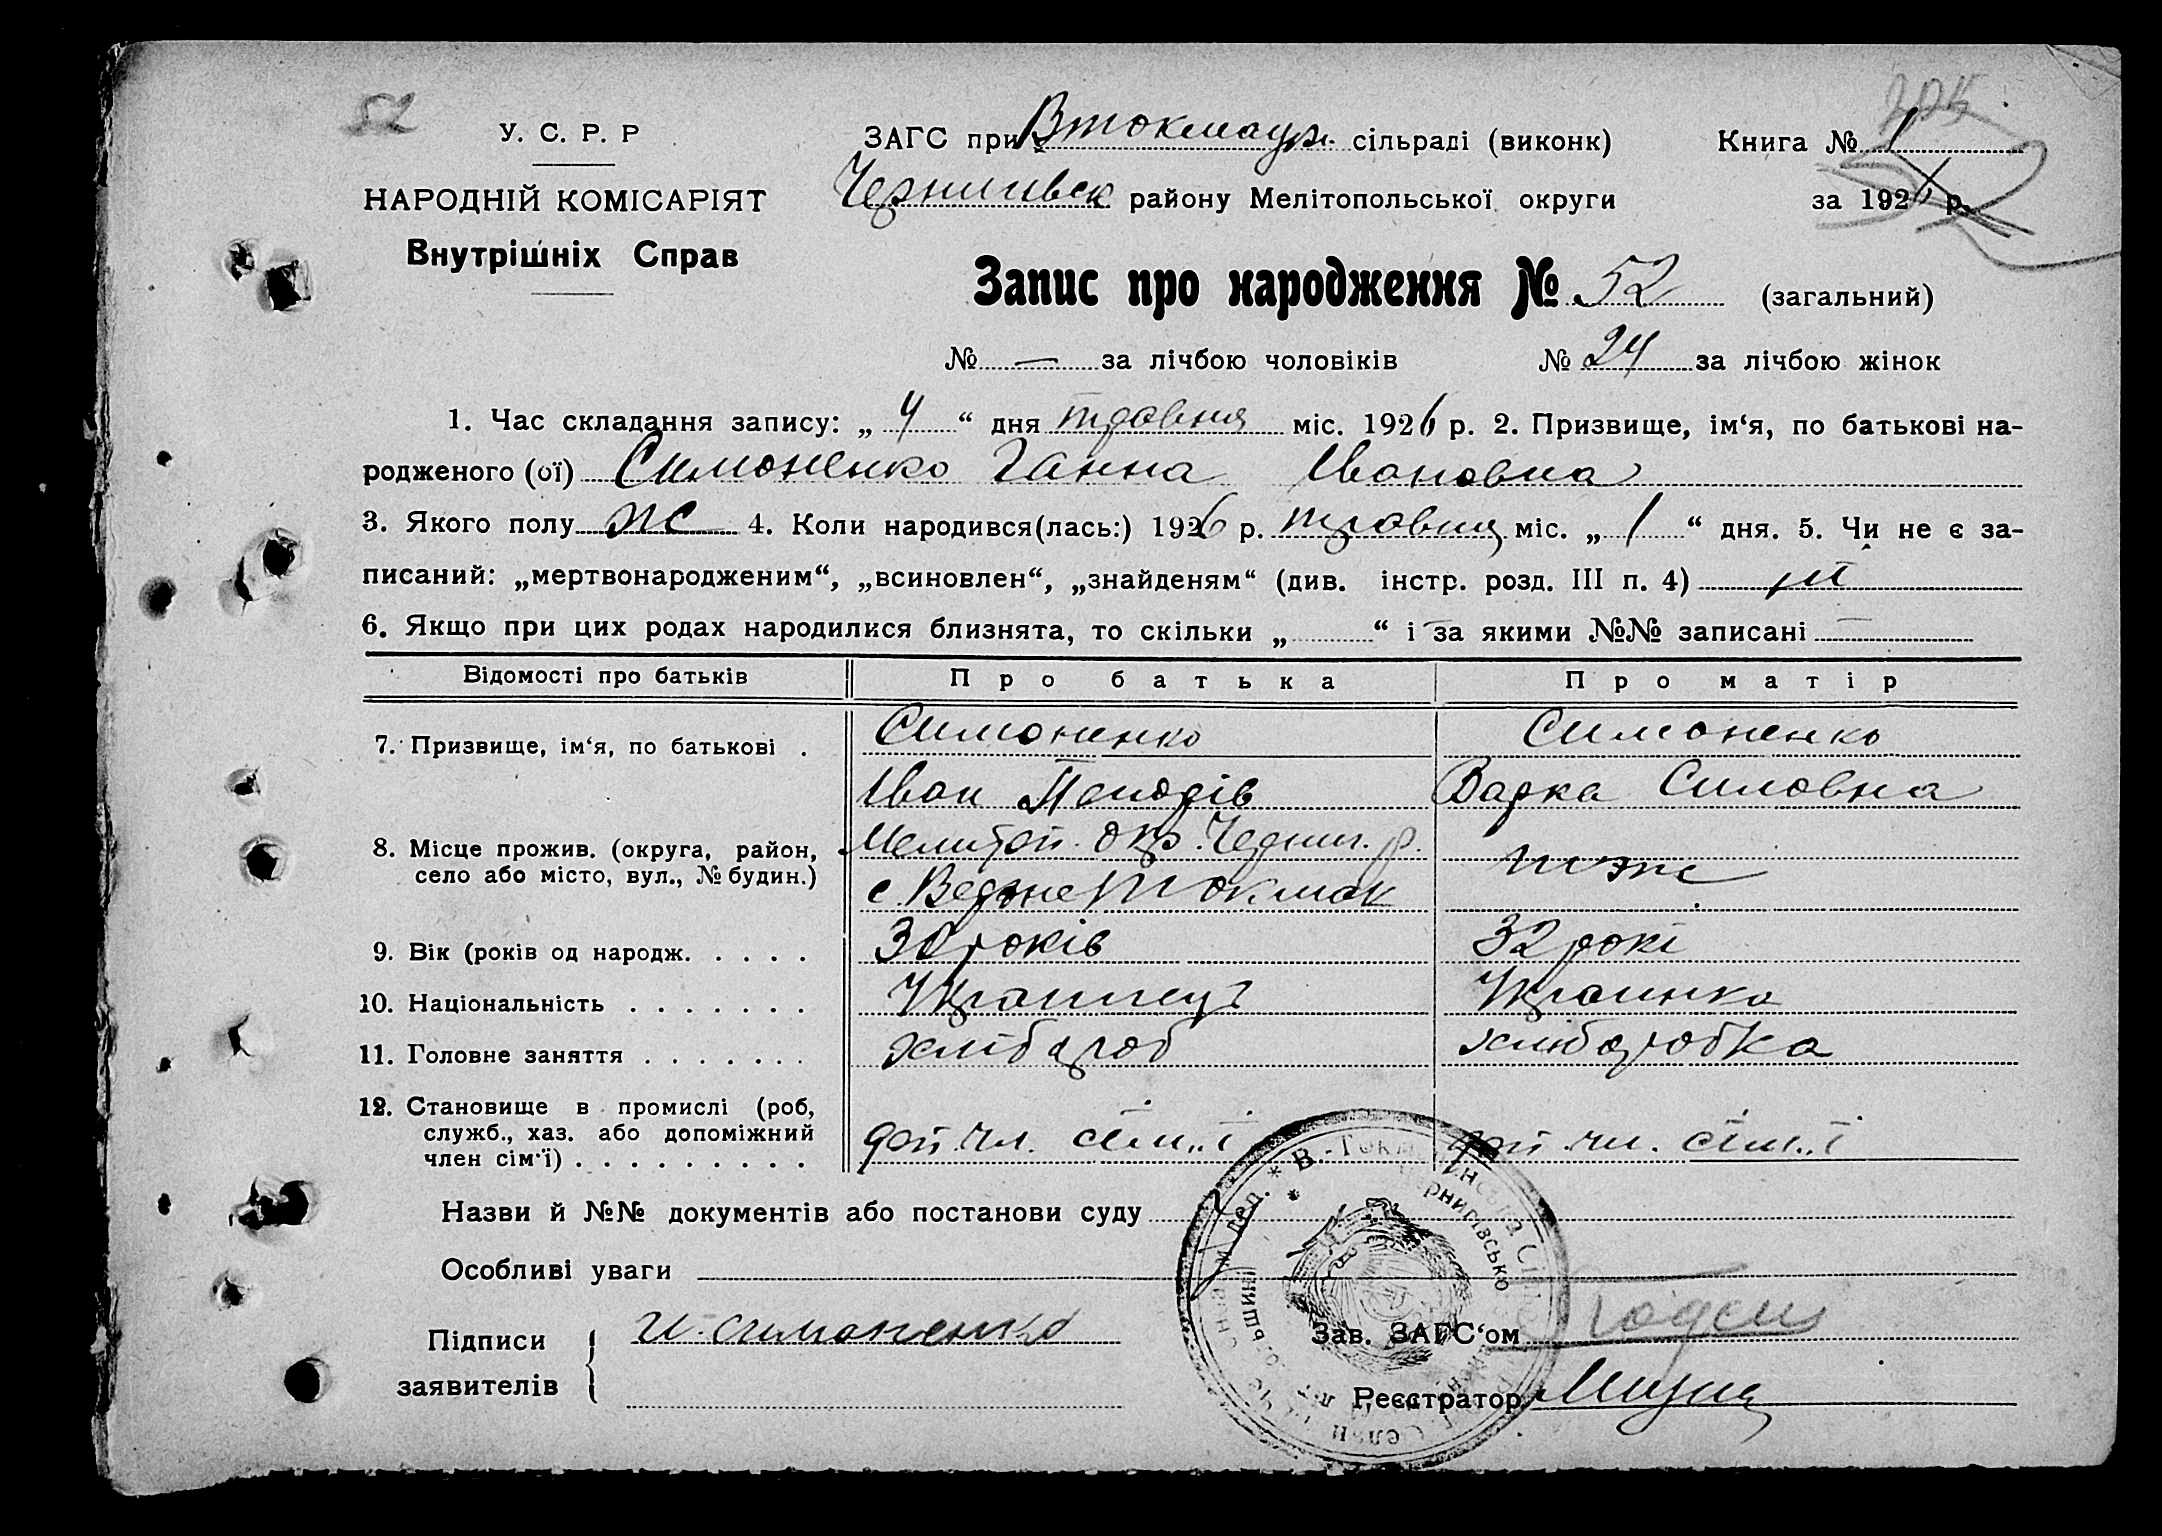 52
У. С. Р. Р
ЗАГС при Втокмацьк. сільраді (виконк)
Книга № 1
НАРОДНІЙ КОМІСАРІЯТ
Чернигівск району Мелітопольської округи
за 1926 р.
52
Внутрішніх Справ
Запис про народження № 52 (загальний)
№ — за лічбою чоловіків № 24 за лічбою жінок
1. Час складання запису: „ 4 “ дня травня міс. 1926 р. 2. Призвище, ім‘я, по батькові на-
родженого (ої) Симоненко Ганна Івановна
3. Якого полу ж 4. Коли народився(лась:) 1926 р. травня міс. „ 1 “ дня. 5. Чи не є за-
писаний: „мертвонародженим“, „всиновлен“, „знайденям“ (див. інстр. розд. III п. 4)
6. Якщо при цих родах народилися близнята, то скільки „ “ і за якими №№ записані —
Відомості про батьків Про батька Про матір
7. Призвище, ім‘я, по батькові . Симоненко Симоненко
Іван Варка Силовна
8. Місце прожив. (округа, район, Мелитоп. окр. Черниг. р.
село або місто, вул., № будин.) с. Верхне Токмак тоже
9. Вік (років од народж. . . . . 30 років 32 рокі
10. Національність . . . . . . . Украинець Украинка
11. Головне заняття . . . . . . . хлібороб хлиборобка
12. Становище в промислі (роб,
служб., хаз. або допоміжний доп. чл. сім..ї доп. чл. сім..ї
член сім‘ї) . . . . . . . . .
* В.-Токм
Чернигівсько
Назви й №№ документів або постанови суду
Особливі уваги
Підписи И Симоненко
заявителів
Зав. ЗАГС‘ом
Реєстратор